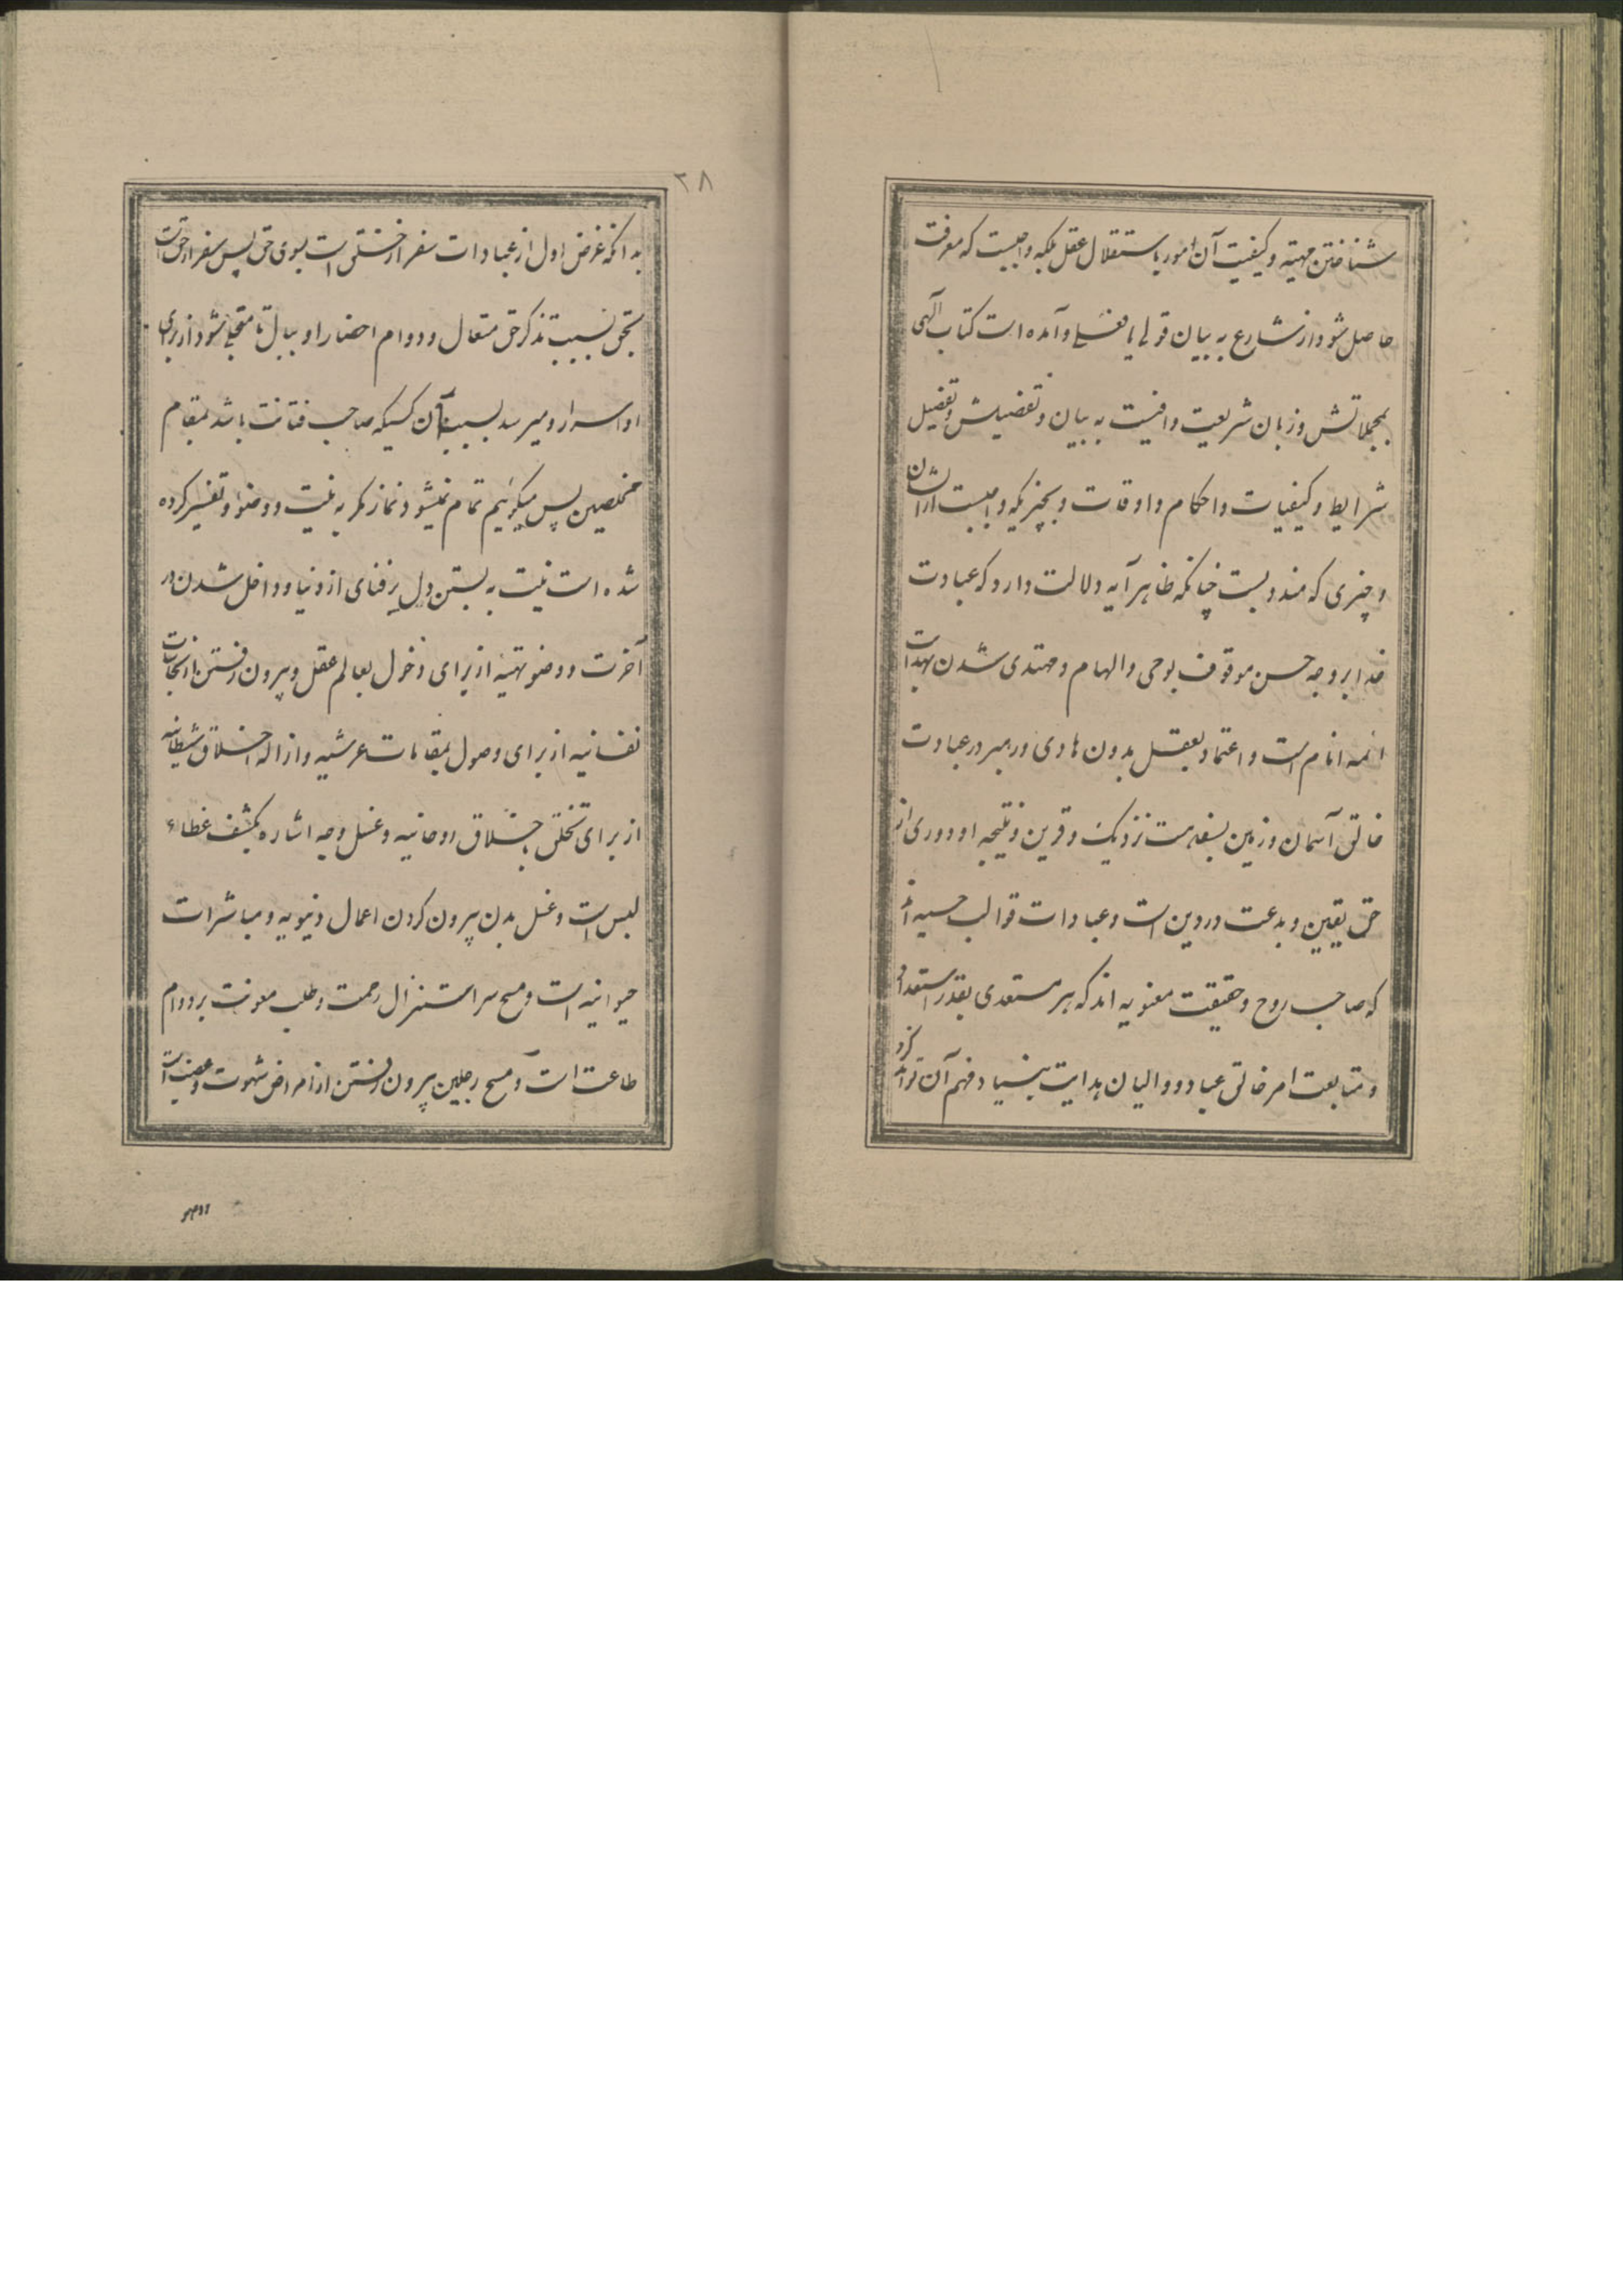 شناختن مهیته و کیفیت آن امور باستقلال عقل بلکه واجبست که معرفت
حاصل شود از شارع به بیان قولی یا فعلی و آمده است کتاب الهی
بمجملاتش و زبان شریعت وافیست به بیان و تفضیلش و تفضیل
شرایط و کیفیات و احکام و اوقات و بچیزیکه واجبست از آن
و چیزی که مندوبست چنانکه ظاهر آیه دلالت دارد که عبادت
خدا بر وجه حسن موقوف بوحی و الهام و مهتدی شدن بهدایت
ائمه انام است و اعتماد بعقل بدون هادی و رهبر در عبادت
خالق آسمان و زمین بسفاهت نزدیک و قرین و نتیجه او دوری از
حق یقین و بدعت در دین است و عبادات قوالب حسیه اند
که صاحب روح و حقیقت معنویه اند که هر مستعدی بقدر استعداد
و متابعت امر خالق عباد و والیان هدایت بنیاد فهم آن تواند کرد
۲۸
بدانکه غرض اول از عبادات سفر از خلق است بسوی حق پس سفر از حق است
بحق بسبب تذکر حق متعال و دوام احضار او ببال تا متجلی شود از برای
او اسرار و میرسد بسبب آن کسیکه صاحب فتانت باشد بمقام
مخلصین پس میگوئیم تمام نمیشود نماز مگر به نیت و وضو و تفسیر کرده
شده است نیت به بستن دل بر فنای از دنیا و داخل شدن در
آخرت و وضو تهیه از برای دخول بعالم عقل و بیرون رفتن از نجاسات
نفسانیه از برای وصول بمقامات عرشیه و ازاله اخلاق شیطانیه
از برای تخلق باخلاق روحانیه و غسل وجه اشاره بکشف غطاء
لبس است و غسل بدن بیرون کردن اعمال دنیویه و مباشرات
حیوانیه است و مسح سر استنزال رحمت و طلب معونت بر دوام
طاعت است و مسح رجلین بیرون رفتن از امراض شهوت و غضب است